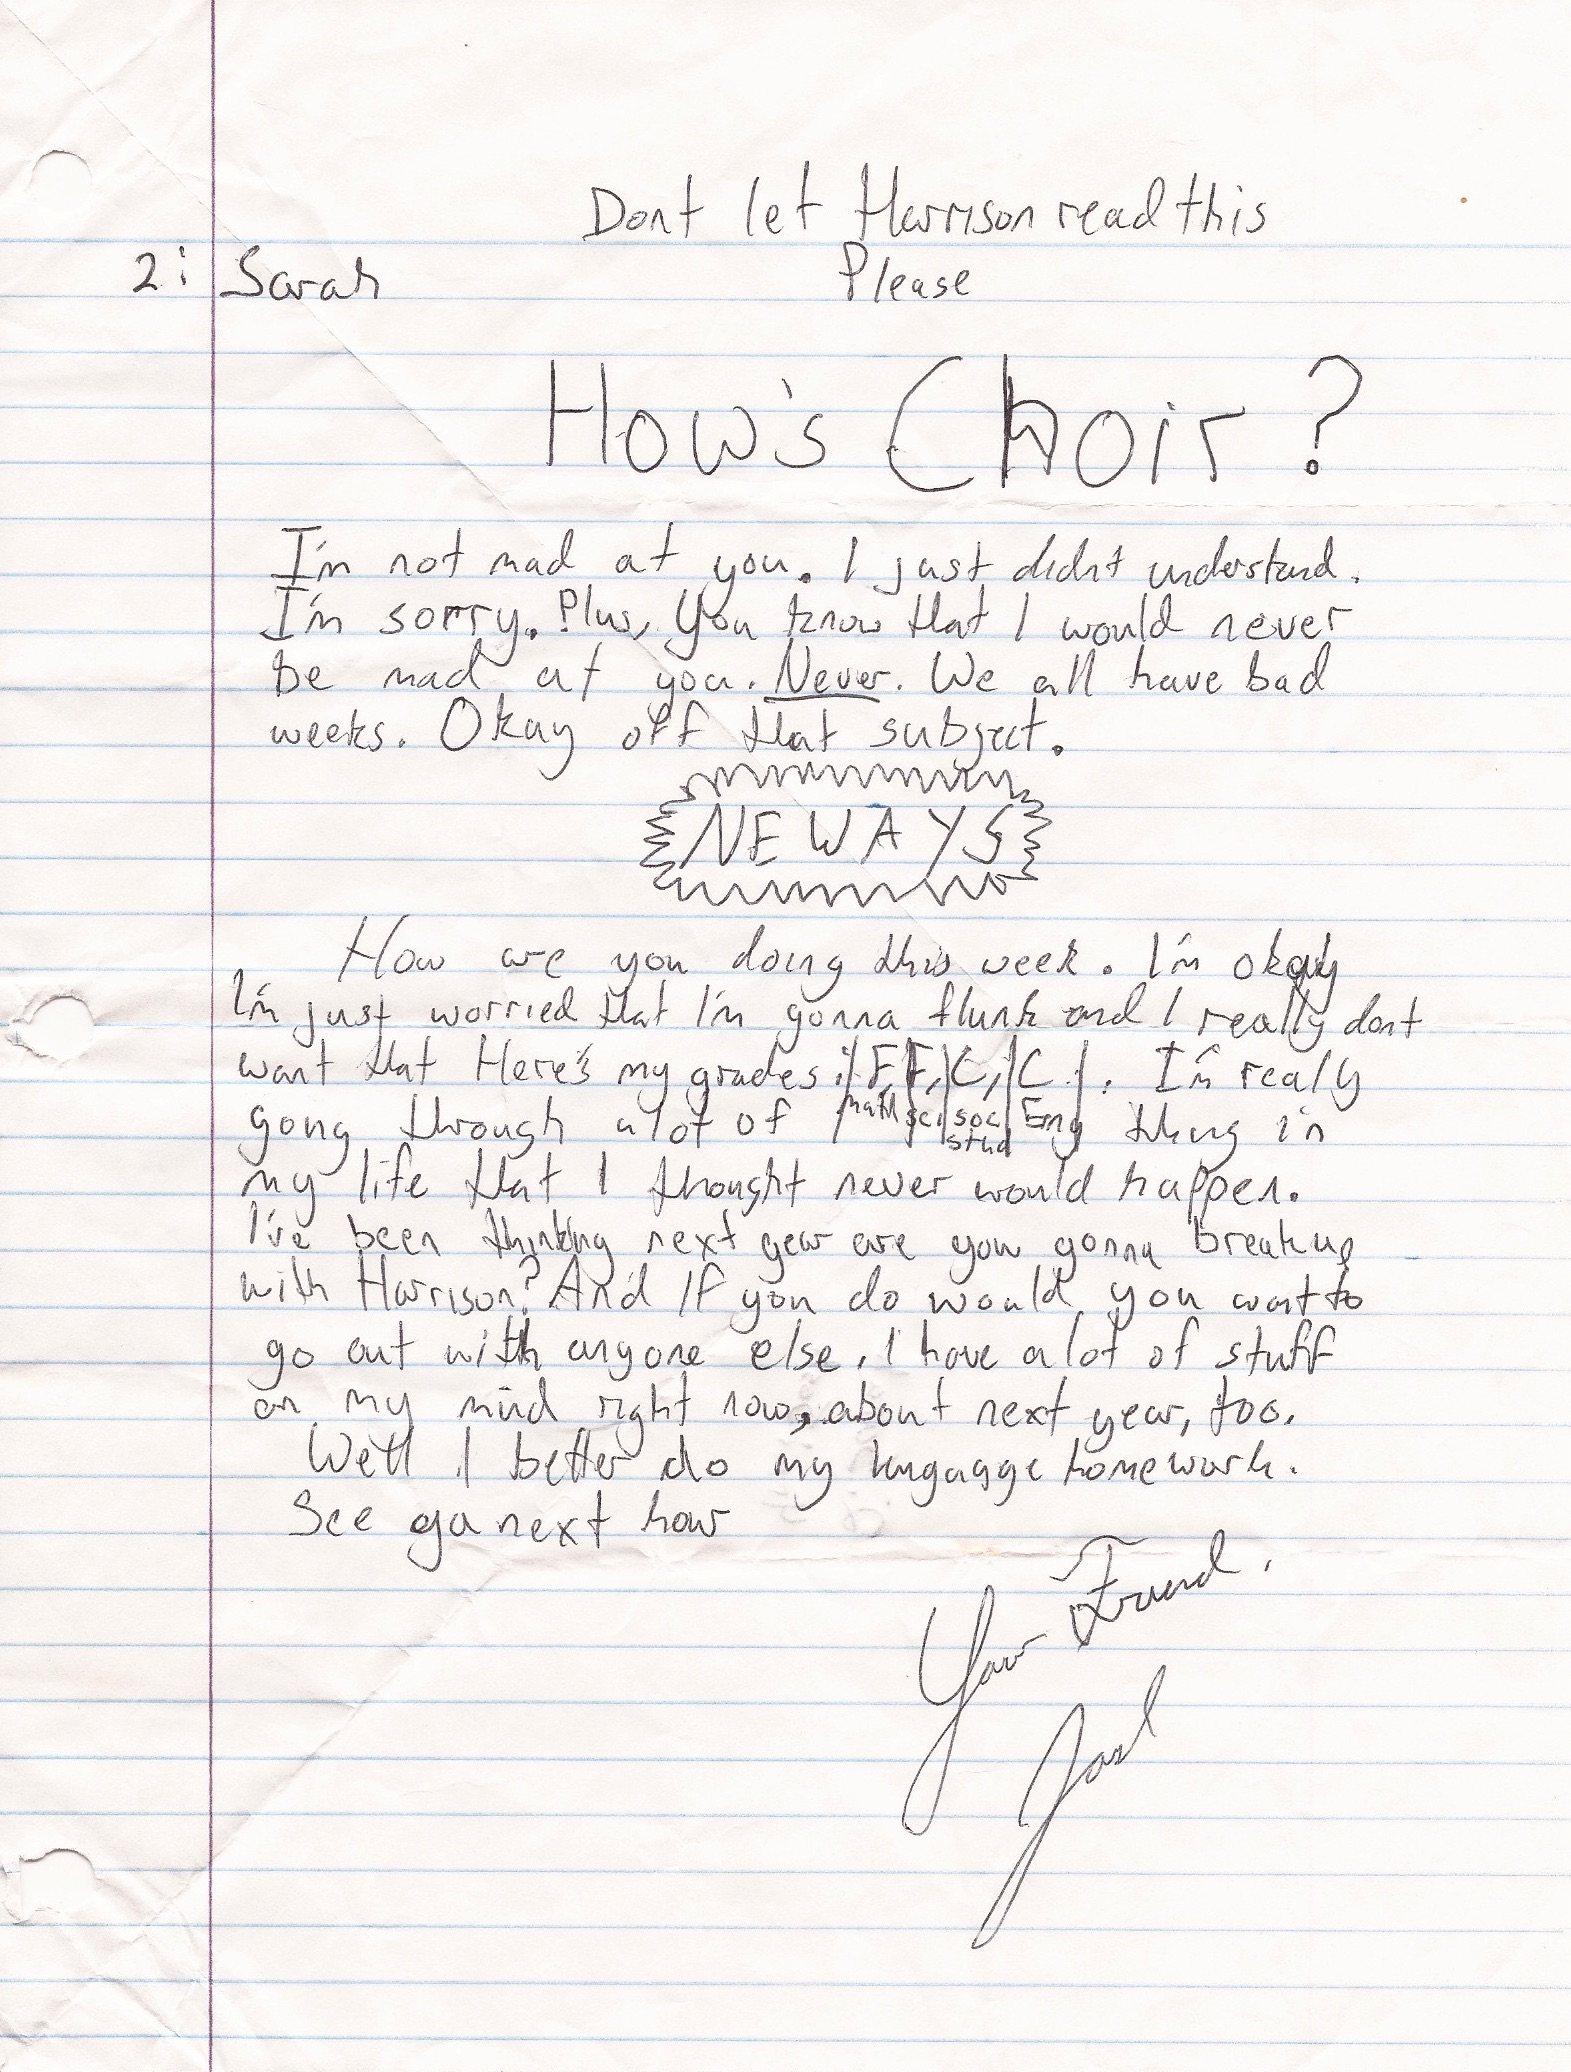 Dont let Harrison read this
2: Sarah Please
How's Choir?
I'm not mad at you. I just didn't understand.
I'm sorry. Plus, You know that I would never
be mad at you. Never. We all have bad
weeks. Okay off that subject.
NEWAYS
How are you doing this week. I'm okay
I'm just worried that I'm gonna flunk and I really dont
want that Here's my grades: | F, | F, | C, | C. |. I'm realy
gong through alot of math sci soc stud Eng thing in
my life that I thought never would happen.
I've been thinking next year are you gonna breakup
with Harrison? And If you do would you want to
go out with anyone else. I have alot of stuff
on my mind right now, about next year, too.
Well I better do my homework.
See ya next hour
Your Friend,